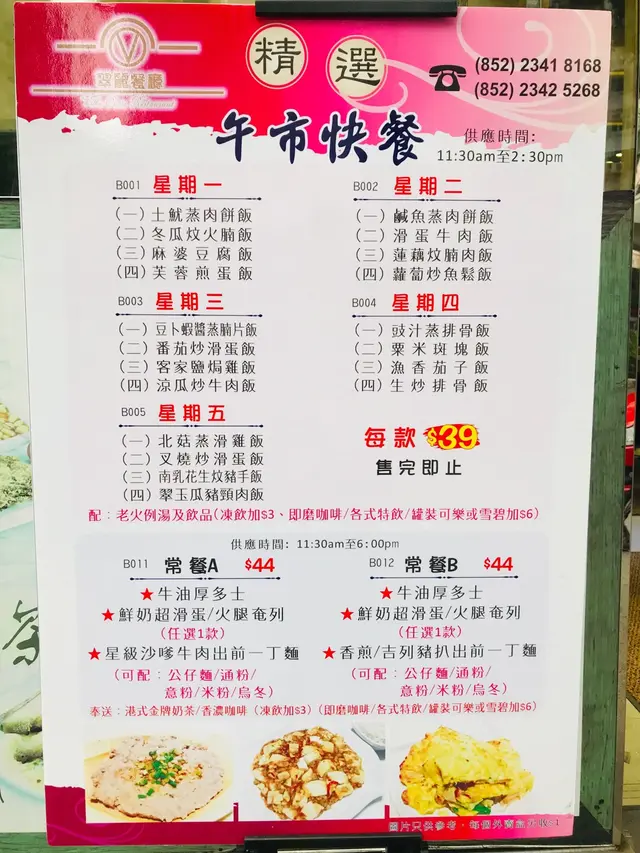 翠麗餐廳
精選
(852) 2341 8168
(852) 2342 5268
午市快餐
供應時間:
11:30am至2:30pm
B001 星期一
(一)土魷蒸肉餅飯
(二)冬瓜炆火腩飯
(三)麻婆豆腐飯
(四)芙蓉煎蛋飯
B002 星期二
(一)鹹魚蒸肉餅飯
(二)滑蛋牛肉飯
(三)蓮藕炆腩肉飯
(四)蘿蔔炒魚鬆飯
B003 星期三
(一)豆卜蝦醬蒸腩片飯
(二)番茄炒滑蛋飯
(三)客家鹽焗雞飯
(四)涼瓜炒牛肉飯
B004 星期四
(一)豉汁蒸排骨飯
(二)粟米斑塊飯
(三)漁香茄子飯
(四)生炒排骨飯
B005 星期五
(一)北菇蒸滑雞飯
(二)叉燒炒滑蛋飯
(三)南乳花生炆豬手飯
(四)翠玉瓜豬頸肉飯
每款$39
售完即止
配:老火例湯及飲品(凍飲加$3、即磨咖啡/各式特飲/罐裝可樂或雪碧加$6)
供應時間: 11:30am至6:00pm
B011 常餐A $44
★牛油厚多士
★鮮奶超滑蛋/火腿奄列
(任選1款)
★星級沙嗲牛肉出前一丁麵
(可配:公仔麵/通粉/
意粉/米粉/烏冬)
B012 常餐B $44
★牛油厚多士
★鮮奶超滑蛋/火腿奄列
(任選1款)
★香煎/吉列豬扒出前一丁麵
(可配:公仔麵/通粉/
意粉/米粉/烏冬)
奉送:港式金牌奶茶/香濃咖啡(凍飲加$3)(即磨咖啡/各式特飲/罐裝可樂或雪碧加$6)
圖片只供參考,每個外賣盒